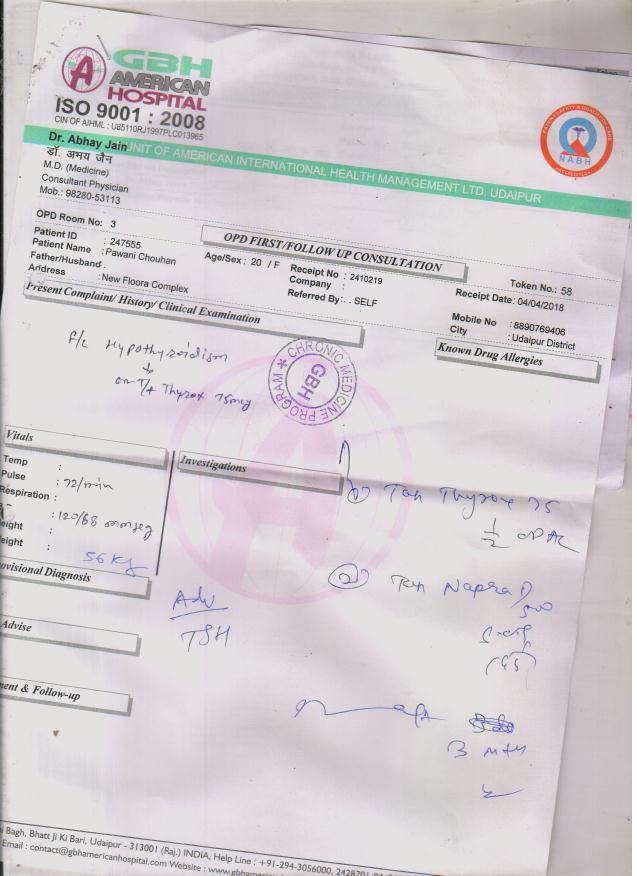 GBH
AMERICAN
HOSPITAL
ISO 9001 : 2008
CIN OF AIHML : U85110RJ1997PLC013965
NABH
UNIT OF AMERICAN INTERNATIONAL HEALTH MANAGEMENT LTD. UDAIPUR
Dr. Abhay Jain
डॉ. अभय जैन
M.D. (Medicine)
Consultant Physician
Mob.: 98280-53113
OPD Room No: 3
OPD FIRST/FOLLOW UP CONSULTATION
Token No.: 58
Patient ID : 247555
Patient Name : Pawani Chouhan
Age/Sex : 20 / F
Receipt No : 2410219
Receipt Date : 04/04/2018
Father/Husband :
Company :
Address : New Floora Complex
Referred By : SELF
Mobile No : 8890769406
City : Udaipur District
Present Complaint/ History/ Clinical Examination
Known Drug Allergies
Hypothyroidism
on Thyrox 75mcg
CHRONIC MEDICINE PROGRAM
GBH
Vitals
Investigations
Temp :
Pulse : 72/min
Respiration :
: 120/68 mmHg
eight :
eight : 56 Kg
ovisional Diagnosis
Adv
TSH
Advise
ent & Follow-up
1) Tab Thyrox 75
1/2 OD AC
2) Tab Napra D 500
3 mth
i Bagh, Bhatt Ji Ki Bari, Udaipur - 313001 (Raj.) INDIA, Help Line : +91-294-3056000, 2428701
Email : contact@gbhamericanhospital.com Website : www.gbhamericanhospital